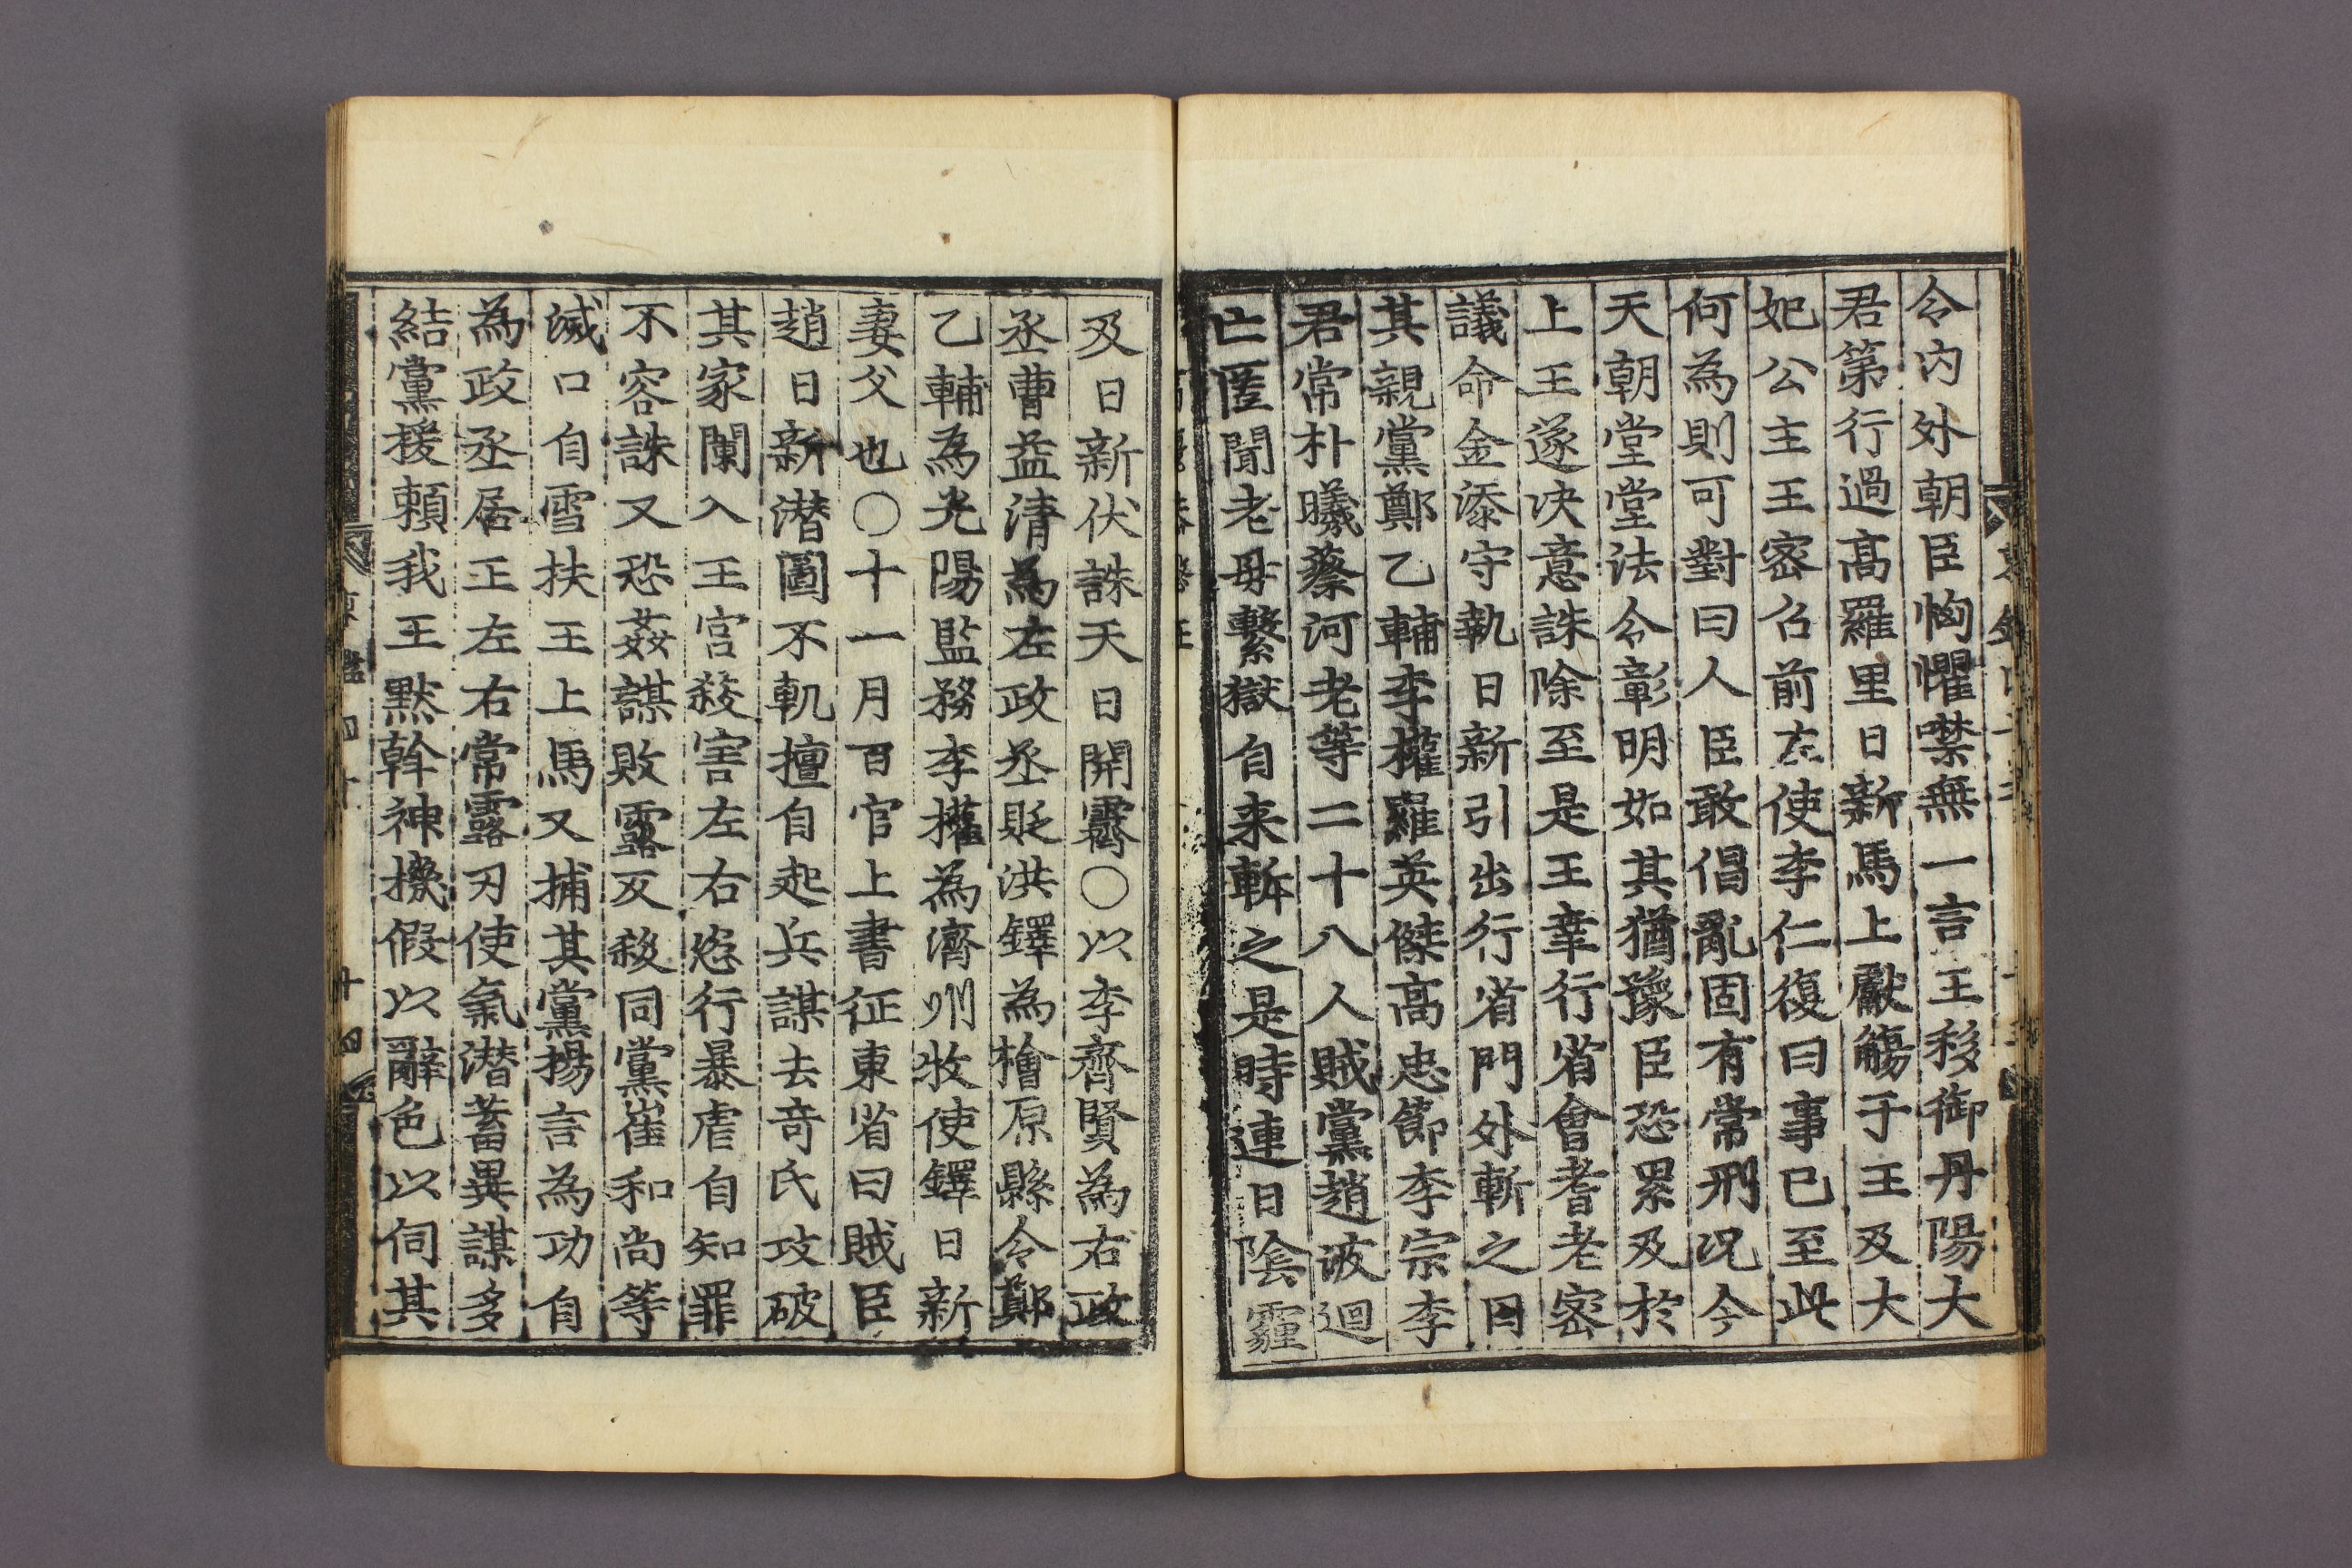 令内外朝臣恟懼噤無一言王移御丹陽大
君第行過髙羅里日新馬上獻觴于王及大
妃公主王密召前左使李仁復曰事已至此
何為則可對曰人臣敢倡亂固有常刑况今
天朝堂堂法令彰明如其猶豫臣恐累及於
上王遂决意誅除至是王幸行省會耆老密
議命金添守執日新引出行省門外斬之囚
其親黨鄭乙輔李權羅英傑高忠節李宗李
君常朴曦蔡河老等二十八人賊黨趙波迴
亡匿聞老母繫獄自来斬之是時連日陰霾
及日新伏誅天日開霽○以李齊賢為右政
丞曹益清為左政丞貶洪鐸為檜原縣令鄭
乙輔為光陽監務李權為濟州牧使鐸日新
妻父也○十一月百官上書征東省曰賊臣
趙日新潜圖不軌擅自起兵謀去竒氏攻破
其家闌入王宫殺害左右恣行暴虐自知罪
不容誅又恐姦謀敗露反殺同黨崔和尚等
滅口自雪扶王上馬又捕其黨揚言為功自
為政丞居正左右常露刃使氣潜蓄異謀多
結黨援頼我王黙斡神機假以辭色以伺其